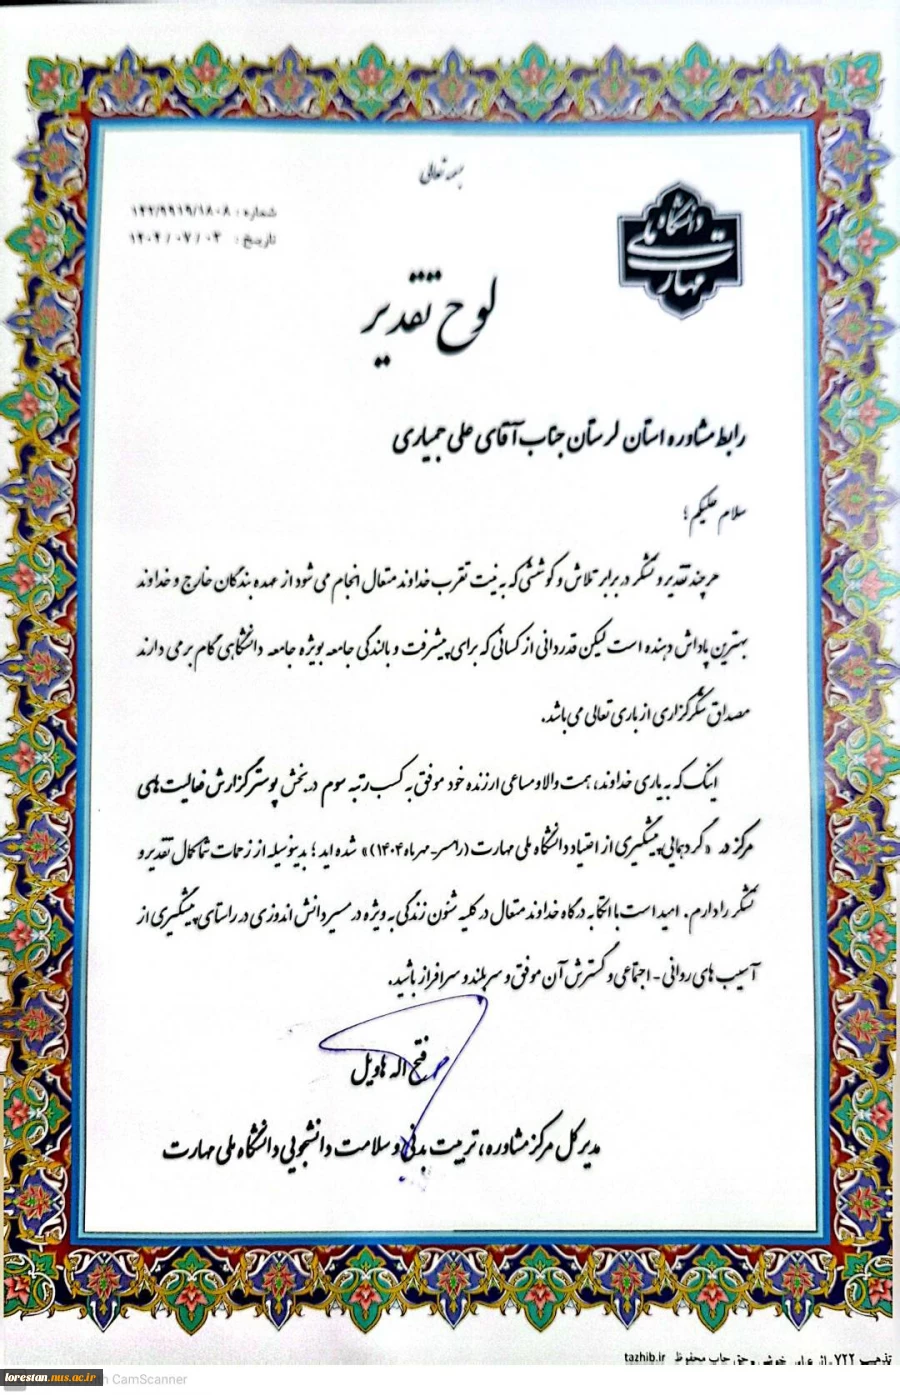 بسمه تعالی
دانشگاه ملی مهارت
شماره : ۱۴۲/۹۹۱۹/۱۸۰۸
تاریخ : ۱۴۰۴ / ۰۷ / ۰۳
لوح تقدیر
رابط مشاوره استان لرستان جناب آقای علی جمیاری
سلام علیکم؛
هر چند تقدیر و تشکر در برابر تلاش و کوششی که به نیت تقرب خداوند متعال انجام می شود از عهده بندگان خارج و خداوند
بهترین پاداش دهنده است لیکن قدردانی از کسانی که برای پیشرفت و بالندگی جامعه بویژه جامعه دانشگاهی گام برمی دارند
مصداق شکرگزاری از باری تعالی می باشد.
اینک که به یاری خداوند، همت والا و مساعی ارزنده خود موفق به کسب رتبه سوم در بخش پوستر گزارش فعالیت های
مرکز در «گردهمایی پیشگیری از اعتیاد دانشگاه ملی مهارت (رامسر-مهرماه ۱۴۰۴)» شده اید؛ بدینوسیله از زحمات شما کمال تقدیر و
تشکر را دارم. امید است با اتکا به درگاه خداوند متعال در کلیه شئون زندگی به ویژه در مسیر دانش اندوزی در راستای پیشگیری از
آسیب های روانی - اجتماعی و گسترش آن موفق و سربلند و سرافراز باشید.
فتح اله هاویل
مدیر کل مرکز مشاوره، تربیت بدنی و سلامت دانشجویی دانشگاه ملی مهارت
چاپ محفوظ tazhib.ir
lorestan.nus.ac.ir
CamScanner